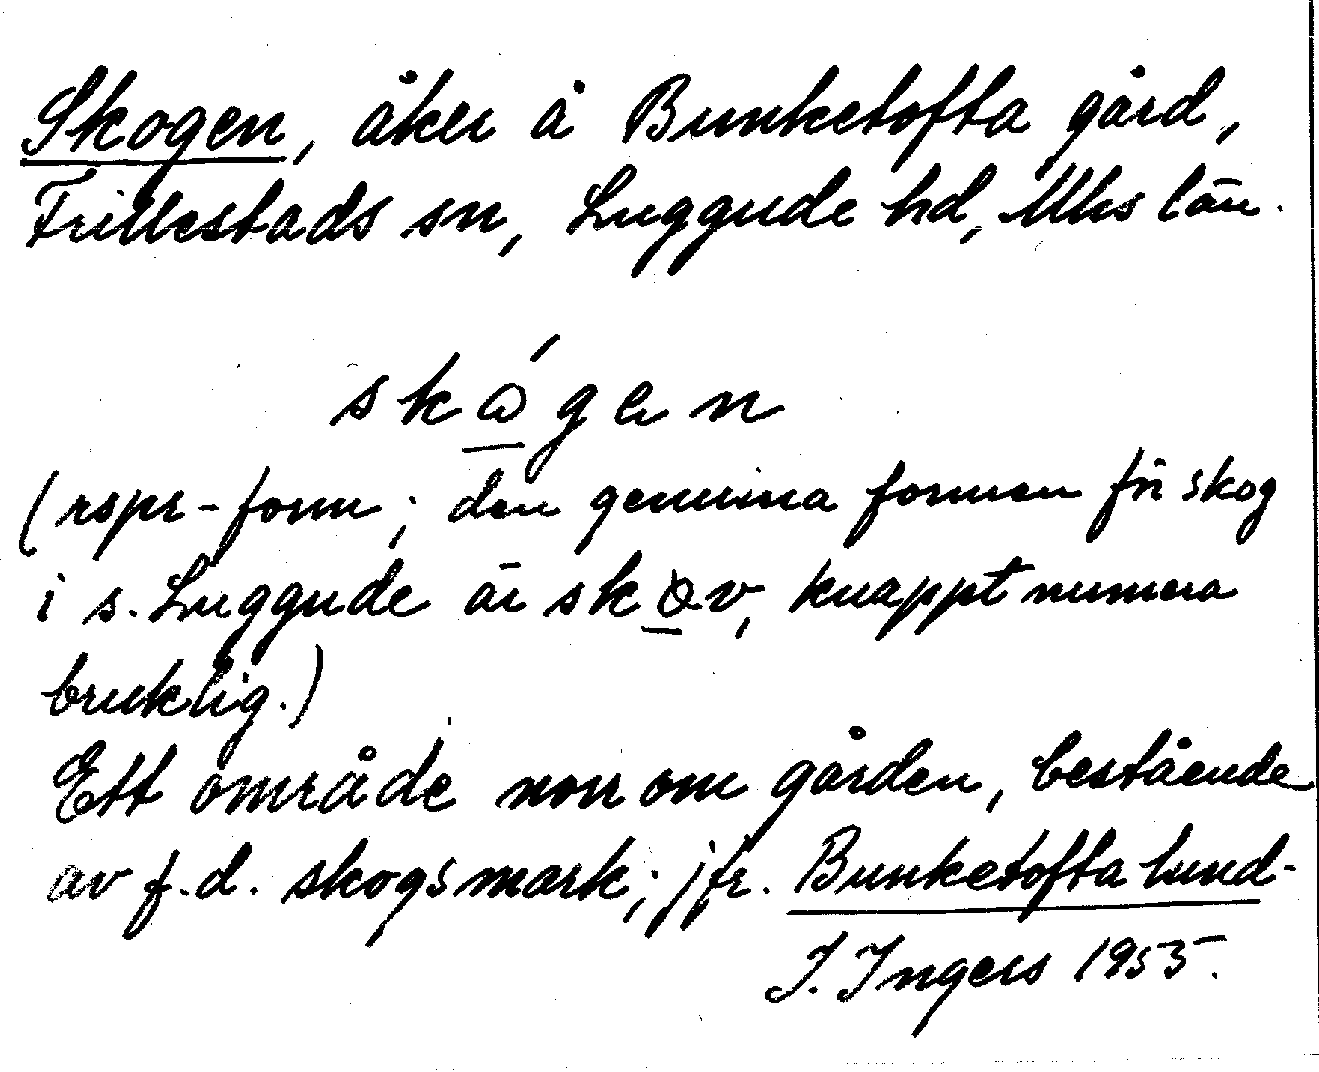 Skogen, åker å Bunketofta gård,
Frillestads sn, Luggude hd, Mhs län.
skǿgen
(rspr-form; den genuina formen för skog
i s. Luggude är skøv, knappt numera
bruklig.)
Ett område norr om gården, bestående
av f.d. skogsmark; jfr. Bunketofta lund.
I. Ingers 1955.